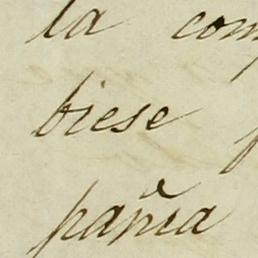 la com
biese
pañia